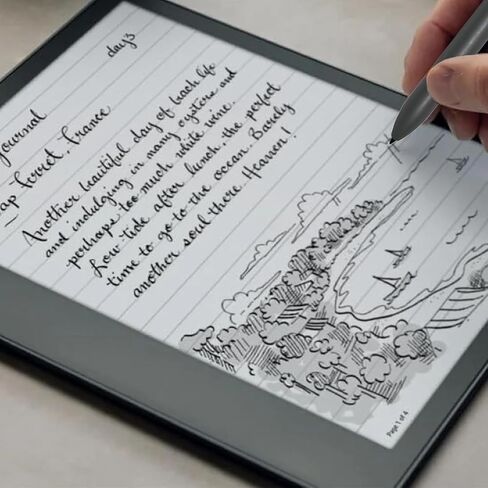 day 3
journal
Cap Ferret, France
Another beautiful day of beach life
and indulging in many oysters and
perhaps too much white wine.
Low-tide after lunch, the perfect
time to go to the ocean. Barely
another soul there. Heaven!
Page 1 of 4